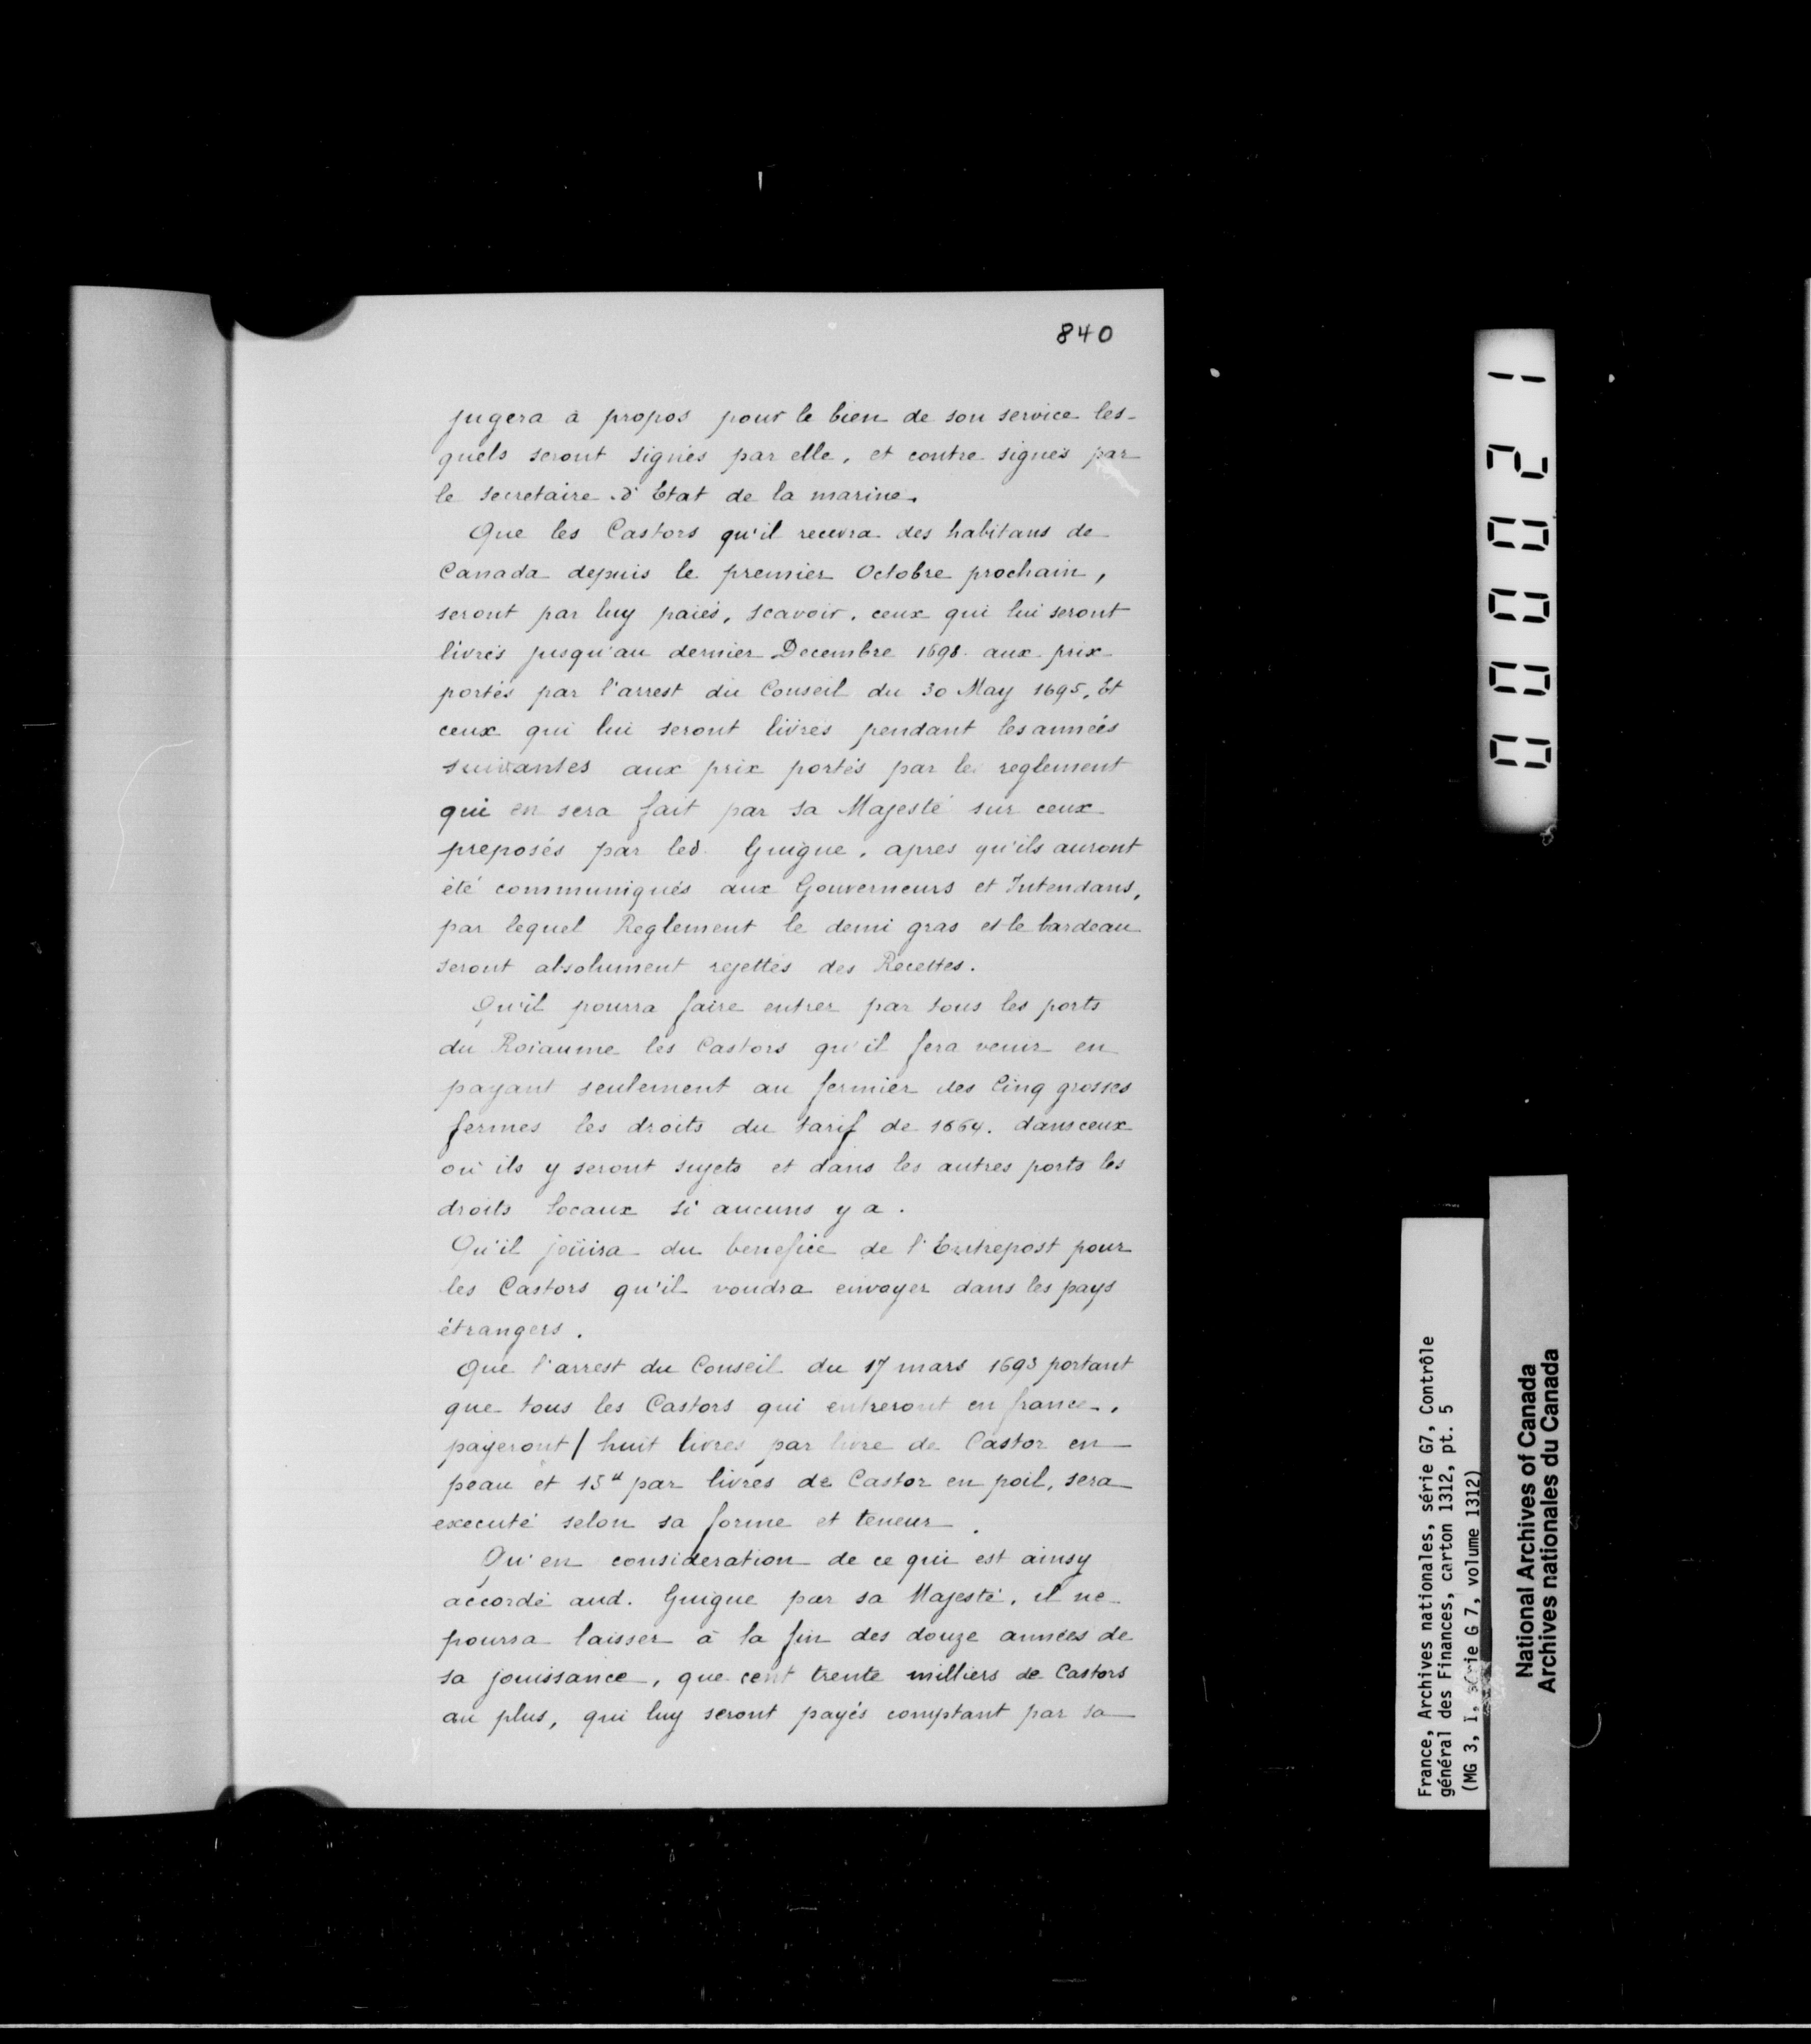 840
jugera à propos pour le bien de son service les-
quels seront signés par elle, et contre signés par
le secretaire d'Etat de la marine.
Que les Castors qu'il recevra des habitans de
Canada depuis le premier Octobre prochain,
seront par luy paiés, scavoir, ceux qui lui seront
livrés jusqu'au dernier Decembre 1698 aux prix
portés par l'arrest du Conseil du 30 May 1695, Et
ceux qui lui seront livrés pendant les années
suivantes aux prix portés par le reglement
qui en sera fait par sa Majesté sur ceux
preposés par led. Guigue, apres qu'ils auront
été communiqués aux Gouverneurs et Intendans,
par lequel Reglement le demi gras et le bardeau
seront absolument rejettés des Recettes.
Qu'il pourra faire entrer par tous les ports
du Roiaume les Castors qu'il fera venir en
payant seulement au fermier des Cinq grosses
fermes les droits du tarif de 1664. dans ceux
où ils y seront sujets et dans les autres ports les
droits locaux si aucuns y a.
Qu'il joüira du benefice de l'Entrepost pour
les Castors qu'il voudra envoyer dans les pays
étrangers.
Que l'arrest du Conseil du 17 mars 1693 portant
que tous les Castors qui entreront en france,
payeront / huit livres par livre de Castor en
peau et 15# par livres de Castor en poil, sera
executé selon sa forme et teneur.
Qu'en consideration de ce qui est ainsy
accordé aud. Guigue par sa Majesté, il ne
pourra laisser à la fin des douze années de
sa jouissance, que cent trente milliers de Castors
au plus, qui luy seront payés comptant par sa
000021
France, Archives nationales, série G7, Contrôle
général des Finances, carton 1312, pt. 5
(MG 3, I, série G 7, volume 1312)
National Archives of Canada
Archives nationales du Canada